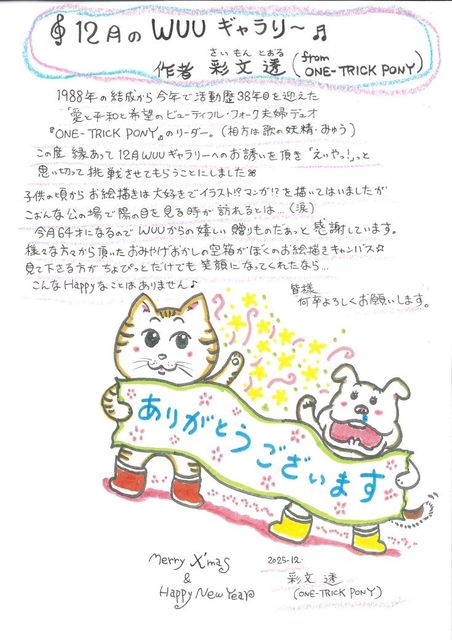 12月の WUU ギャラリー
さい もん とおる
作者 彩文 透 (from ONE-TRICK PONY)
1988年の結成から今年で活動歴38年目を迎えた
「愛と平和と希望のビューティフル・フォーク夫婦デュオ
『ONE-TRICK PONY』のリーダー。(相方は歌の妖精・みゅう)
この度 縁あって12月WUUギャラリーへのお誘いを頂き「えいやっ!」っと
思い切って挑戦させてもらうことにしました
子供の頃からお絵描きは大好きでイラスト!?マンガ!?を描いてはいましたが
こおんな公の場で陽の目を見る時が訪れるとは…(涙)
今月64才になるのでWUUからの嬉しい贈りものだぁっと感謝しています。
様々な方々から頂いたおみやげおかしの空箱がぼくのお絵描きキャンバス☆
見て下さる方がちょぴっとだけでも笑顔になってくれたなら…
こんなHappyなことはありません♪
皆様
何卒よろしくお願いします。
ありがとうございます
Merry X'mas
&
Happy New Year
2025-12.
彩文 透
(ONE-TRICK PONY)